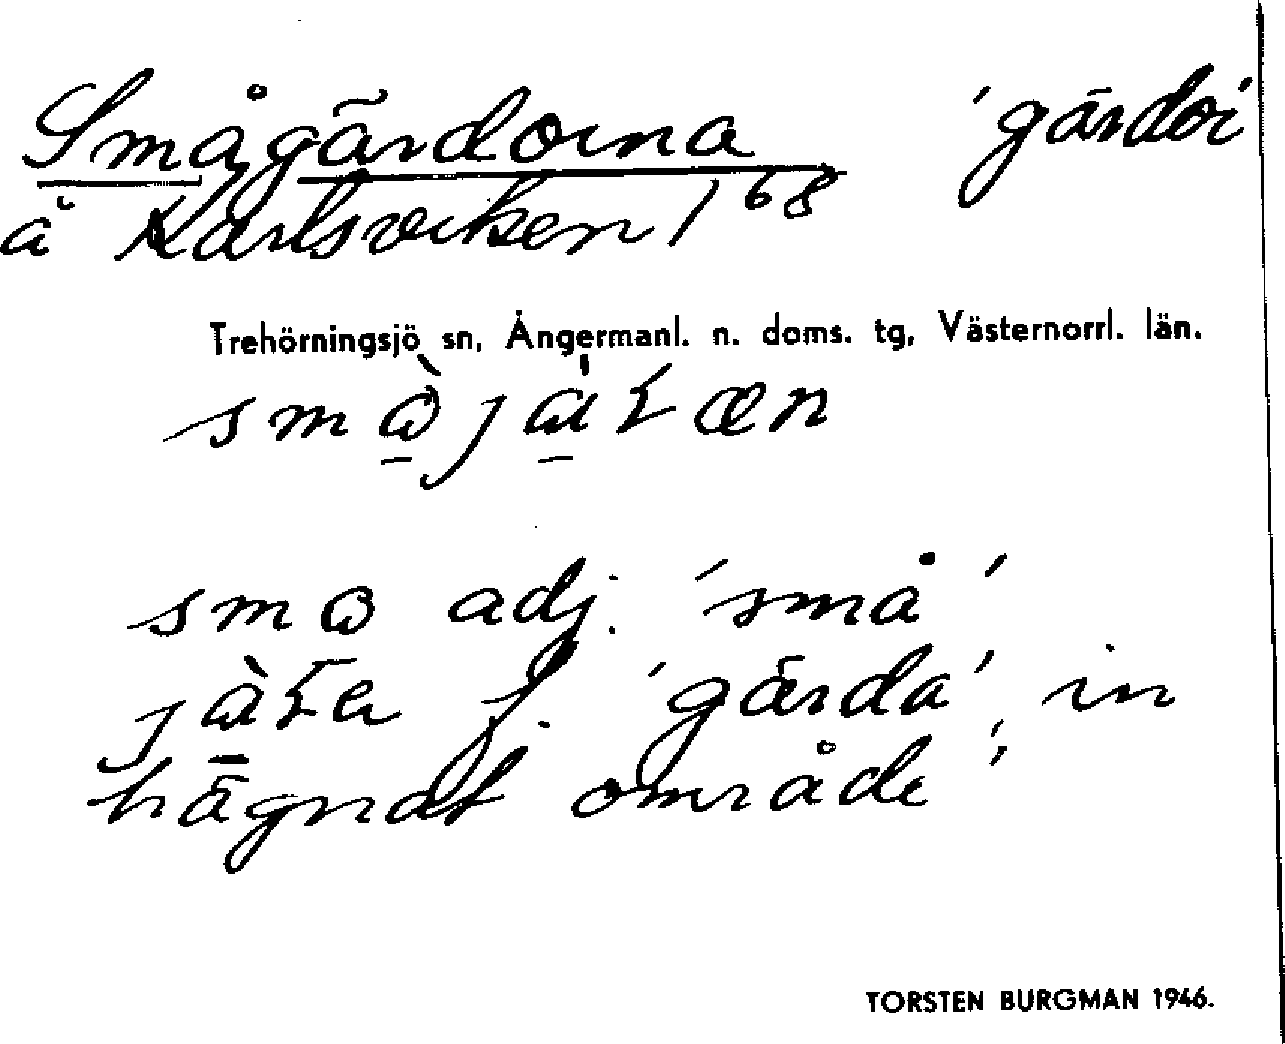 Smågärdorna 'gärdor'
å Karlsviken 1⁶⁸
Trehörningsjö sn, Ångermanl. n. doms. tg, Västernorrl. län.
adj. 'små'
f. 'gärda', in
hägnat område'
TORSTEN BURGMAN 1946.